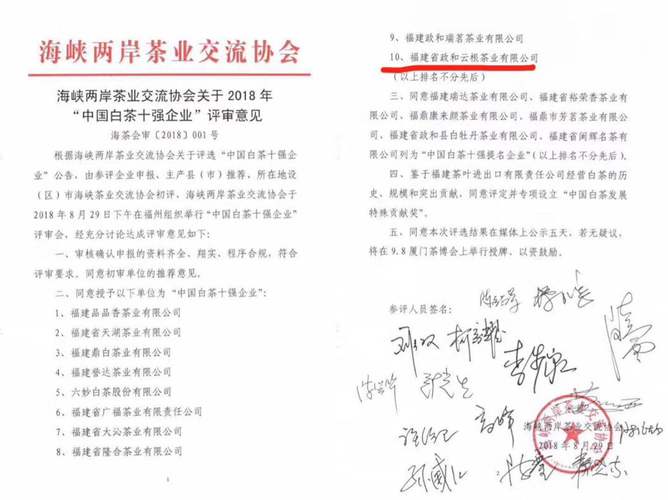 海峡两岸茶业交流协会
海峡两岸茶业交流协会关于 2018 年
“中国白茶十强企业”评审意见
海茶会审〔2018〕001 号
根据海峡两岸茶业交流协会关于评选“中国白茶十强企
业”公告，由参评企业申报、主产县（市）推荐，所在地设
（区）市海峡茶业交流协会初评，海峡两岸茶业交流协会于
2018 年 8 月 29 日下午在福州组织举行“中国白茶十强企业”
评审会，经充分讨论达成评审意见如下：
一、审核确认申报的资料齐全、翔实，程序合规，符合
评审要求。同意初审单位的推荐意见。
二、同意授予以下单位为“中国白茶十强企业”：
1、福建品品香茶业有限公司
2、福建省天湖茶业有限公司
3、福建鼎白茶业有限公司
4、福建誉达茶业有限公司
5、六妙白茶股份有限公司
6、福建省广福茶业有限责任公司
7、福建省大沁茶业有限公司
8、福建省隆合茶业有限公司
1
9、福建政和瑞茗茶业有限公司
10、福建省政和云根茶业有限公司
（以上排名不分先后）
三、同意福建瑞达茶业有限公司、福建省裕荣香茶业有
限公司、福鼎康来颜茶业有限公司、福鼎市芳茗茶业有限公
司、福建省政和县白牡丹茶业有限公司、福建省闽辉名茶有
限公司列为“中国白茶十强提名企业”（以上排名不分先后）。
四、鉴于福建茶叶进出口有限责任公司经营白茶的历
史、规模和突出贡献，同意评定并专项设立“中国白茶发展
特殊贡献奖”。
五、同意本次评选结果在媒体上公示五天，若无疑议，
将在 9.8 厦门茶博会上举行授牌，以资鼓励。
参评人员签名：
海峡两岸茶业交流协会
2018 年 8 月 29 日